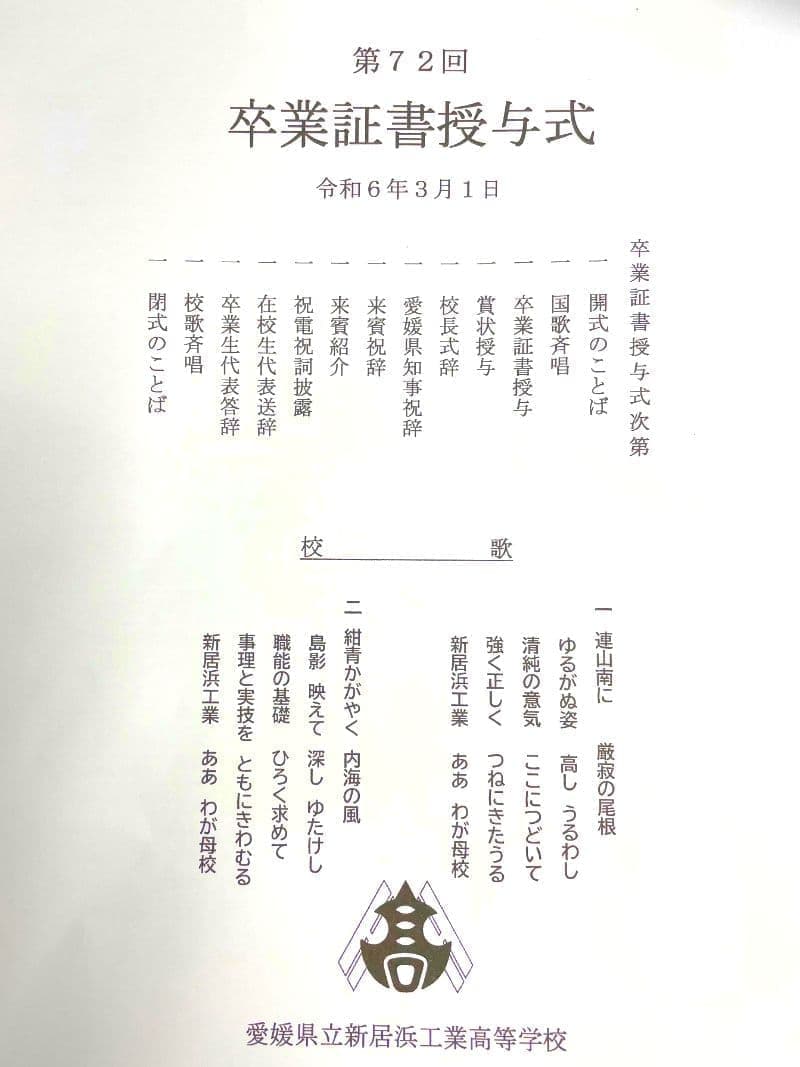 第７２回
卒業証書授与式
令和６年３月１日
卒業証書授与式次第
一　開式のことば
一　国歌斉唱
一　卒業証書授与
一　賞状授与
一　校長式辞
一　愛媛県知事祝辞
一　来賓祝辞
一　来賓紹介
一　祝電祝詞披露
一　在校生代表送辞
一　卒業生代表答辞
一　校歌斉唱
一　閉式のことば
校　歌
一　連山南に　厳寂の尾根
ゆるがぬ姿　高し　うるわし
清純の意気　ここにつどいて
強く正しく　つねにきたうる
新居浜工業　ああ　わが母校
二　紺青かがやく　内海の風
島影　映えて　深し　ゆたけし
職能の基礎　ひろく求めて
事理と実技を　ともにきわむる
新居浜工業　ああ　わが母校
高
愛媛県立新居浜工業高等学校